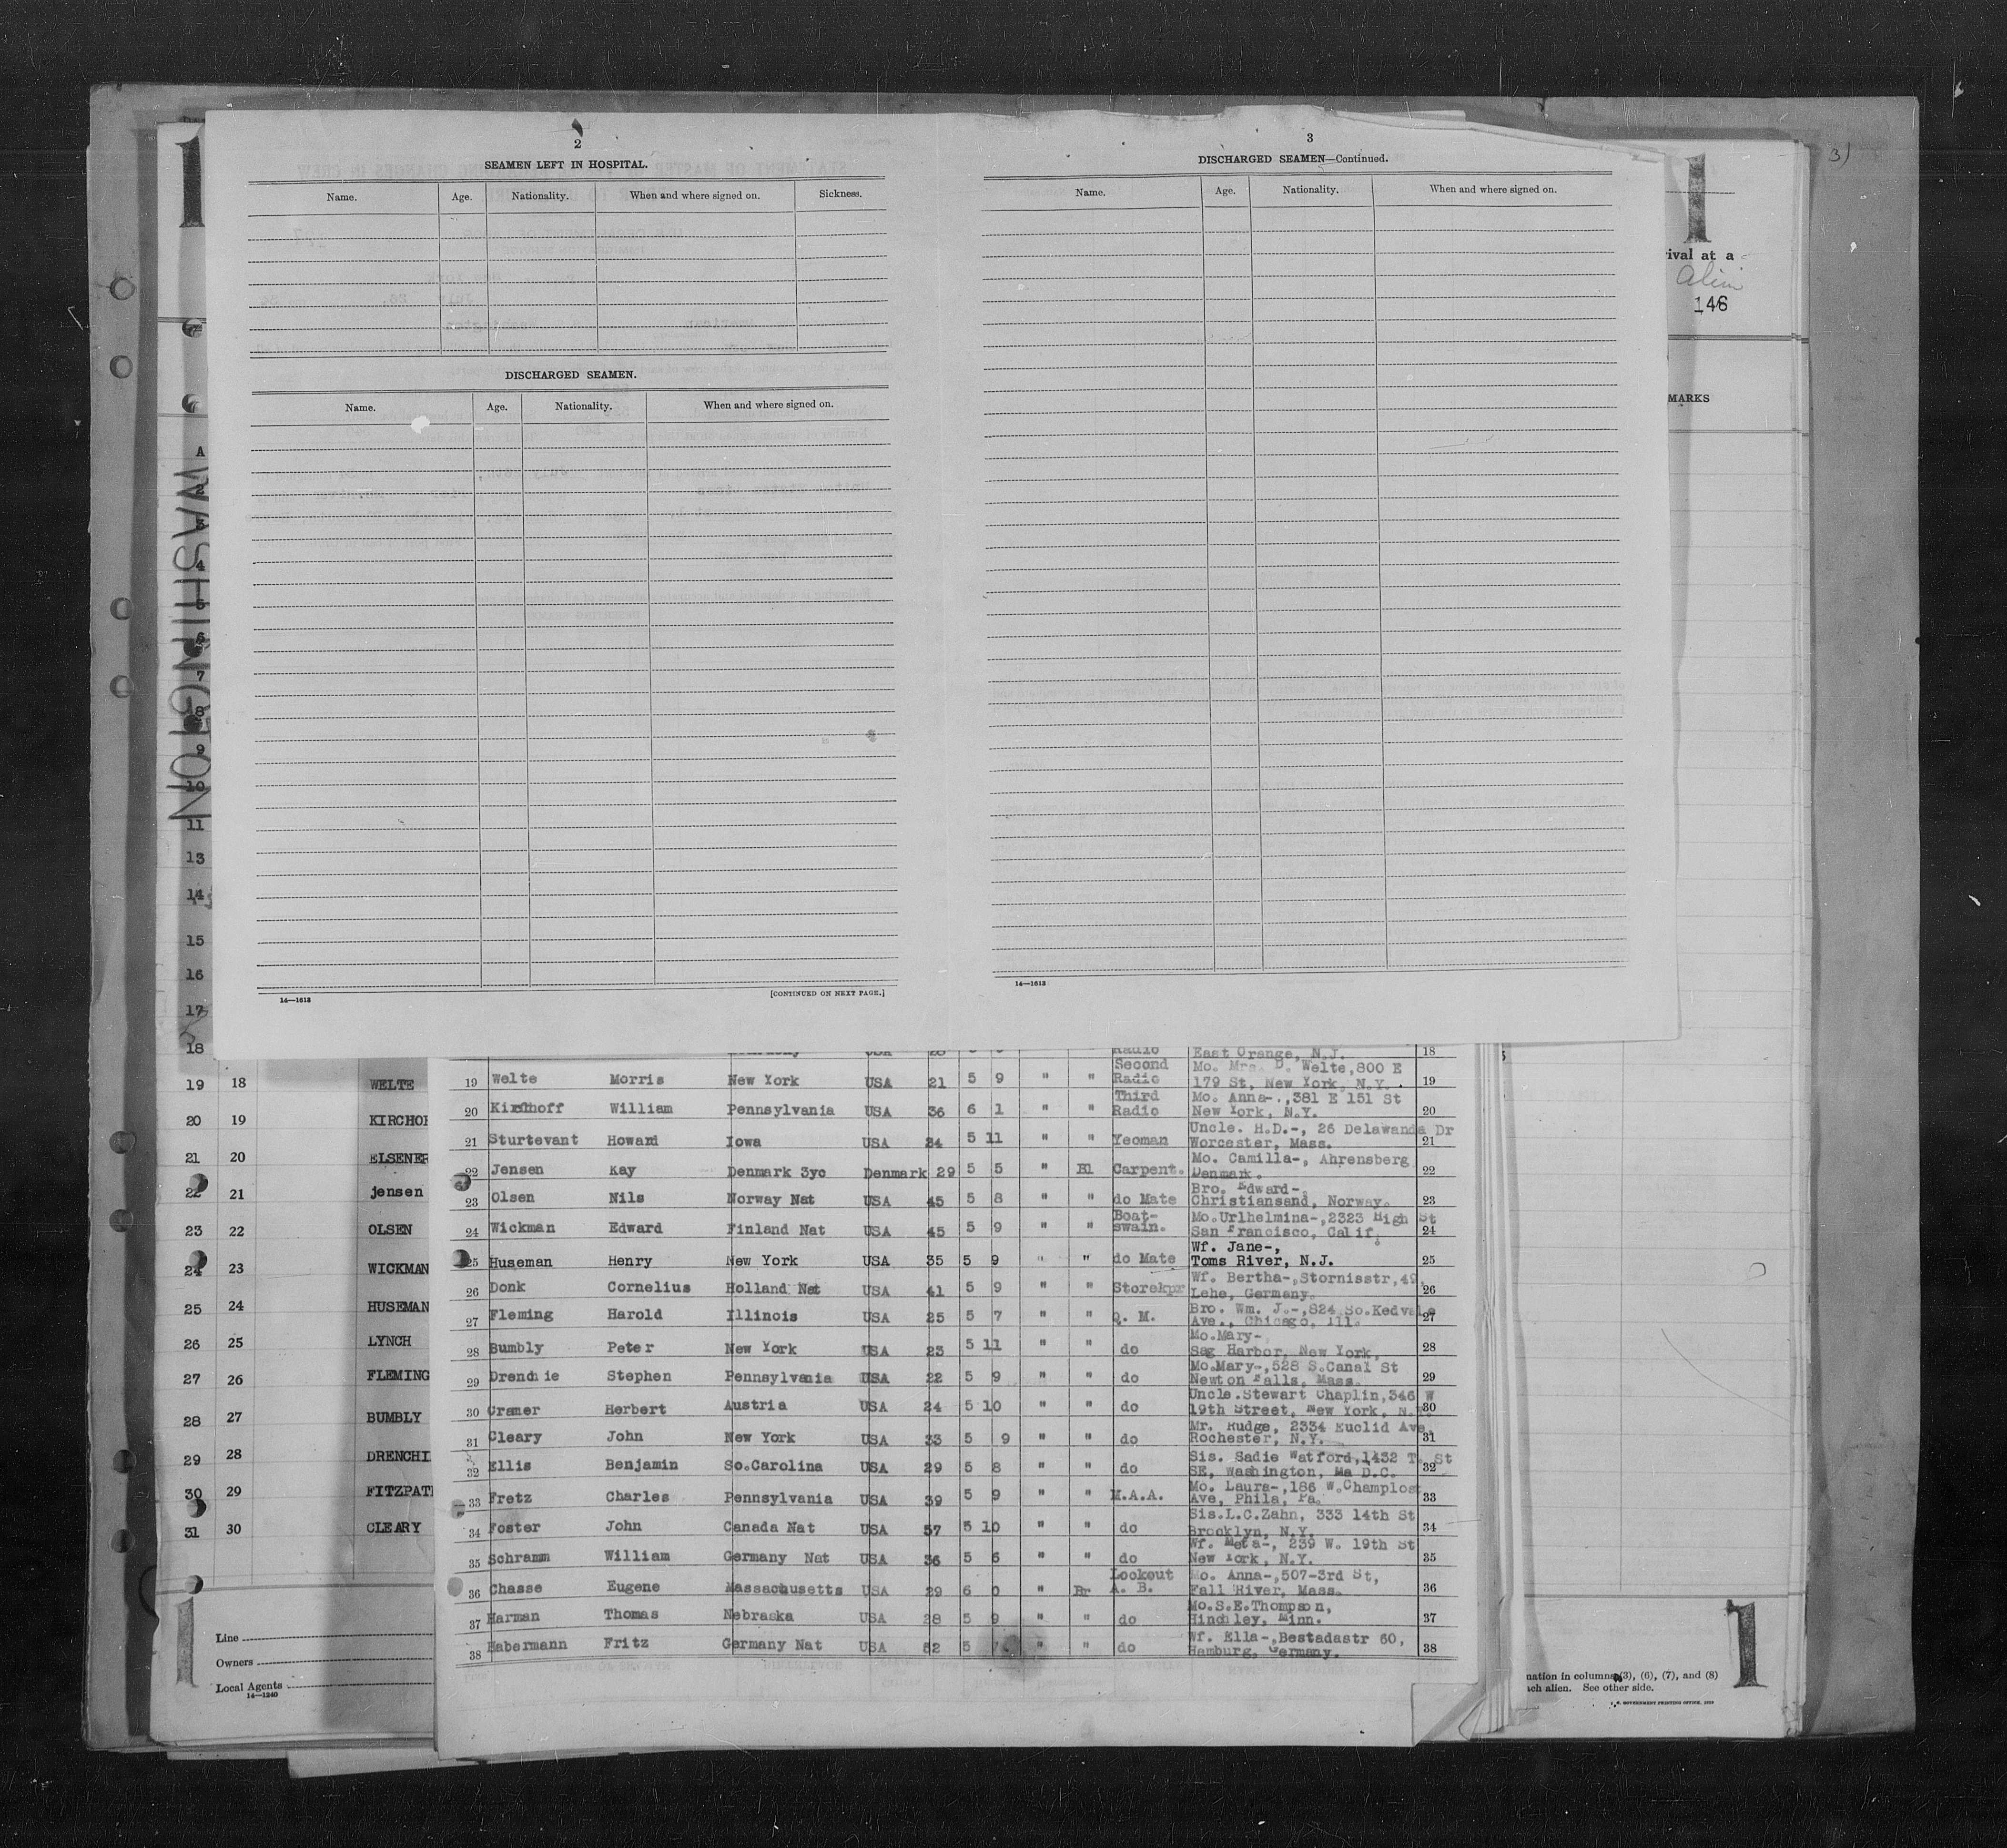 2
SEAMEN LEFT IN HOSPITAL.
Name. Age. Nationality. When and where signed on. Sickness.
DISCHARGED SEAMEN.
Name. Age. Nationality. When and where signed on.
14—1613 [CONTINUED ON NEXT PAGE.]
3
DISCHARGED SEAMEN—Continued.
Name. Age. Nationality. When and where signed on.
14—1613
1
WASHINGTON
A
2
3
4
5
6
7
8
9
10
11
13
14
15
16
17
18
19 18 WELTE
20 19 KIRCHO
21 20 ELSENER
22 21 jensen
23 22 OLSEN
24 23 WICKMAN
25 24 HUSEMAN
26 25 LYNCH
27 26 FLEMING
28 27 BUMBLY
29 28 DRENCHI
30 29 FITZPAT
31 30 CLEARY
Line
Owners
Local Agents
14—1240
1
USA 28 Radio East Orange, N.J. 18
19 Welte Morris New York USA 21 5 9 " " Second Radio Mo. Mrs. D. Welte,800 E
179 St, New York, N.Y. 19
20 Kirchhoff William Pennsylvania USA 36 6 1 " " Third Radio Mo. Anna-.,381 E 151 St
New York, N.Y. 20
21 Sturtevant Howard Iowa USA 24 5 11 " " Yeoman Uncle. H.D.-, 26 Delawanda Dr
Worcester, Mass. 21
22 Jensen Kay Denmark 3yc Denmark 29 5 5 " Bl Carpent. Mo. Camilla-, Ahrensberg
Denmark. 22
23 Olsen Nils Norway Nat USA 45 5 8 " " do Mate Bro. Edward-,
Christiansand, Norway. 23
24 Wickman Edward Finland Nat USA 45 5 9 " " Boat-swain. Mo.Urlhelmina-,2323 High St
San Francisco, Calif. 24
25 Huseman Henry New York USA 35 5 9 " " do Mate Wf. Jane-,
Toms River, N.J. 25
26 Donk Cornelius Holland Nat USA 41 5 9 " " Storekpr Wf. Bertha-,Stornisstr,49,
Lehe, Germany. 26
27 Fleming Harold Illinois USA 25 5 7 " " Q. M. Bro. Wm. J.-,824 So.Kedvale
Ave., Chicago, Ill. 27
28 Bumbly Peter New York USA 23 5 11 " " do Mo.Mary-,
Sag Harbor, New York, 28
29 Drenchie Stephen Pennsylvania USA 22 5 9 " " do Mo.Mary-,528 S.Canal St
Newton Falls, Mass. 29
30 Cramer Herbert Austria USA 24 5 10 " " do Uncle.Stewart Chaplin,346 W
19th Street, New York, N.Y. 30
31 Cleary John New York USA 33 5 9 " " do Mr. Rudge, 2334 Euclid Ave,
Rochester, N.Y. 31
32 Ellis Benjamin So.Carolina USA 29 5 8 " " do Sis. Sadie Watford,1432 T. St
SE, Washington, Ma D.C. 32
33 Fretz Charles Pennsylvania USA 39 5 9 " " M.A.A. Mo. Laura-,186 W.Champlost
Ave, Phila, Pa. 33
34 Foster John Canada Nat USA 57 5 10 " " do Sis.L.C.Zahn, 333 14th St
Brooklyn, N.Y. 34
35 Schramm William Germany Nat USA 36 5 6 " " do Wf. Meta-, 239 W. 19th St
New York, N.Y. 35
36 Chasse Eugene Massachusetts USA 29 6 0 " Br Lookout A. B. Mo. Anna-,507-3rd St,
Fall River, Mass. 36
37 Harman Thomas Nebraska USA 28 5 9 " " do Mo.S.E.Thompson,
Hinckley, Minn. 37
38 Habermann Fritz Germany Nat USA 52 5 7 " " do Wf. Ella-,Bestadastr 60,
Hamburg, Germany. 38
3)
1
rival at a
Alien
146
MARKS
nation in columns (3), (6), (7), and (8)
ach alien. See other side.
U. S. GOVERNMENT PRINTING OFFICE,
1